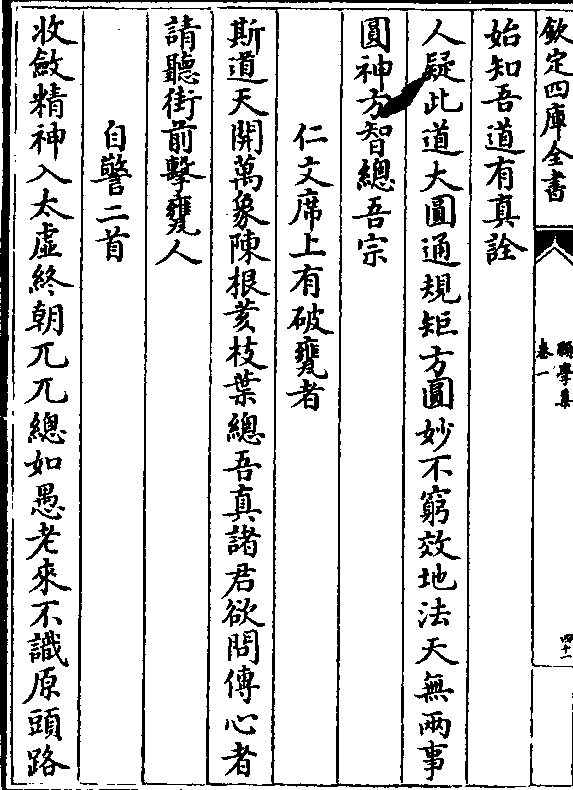 欽定四庫全書
願學集
卷一
四十一
始知吾道有真詮
人疑此道大圓通規矩方圓妙不窮效地法天無兩事
圓神方智總吾宗
仁文席上有破甕者
斯道天開萬象陳根荄枝葉總吾真諸君欲問傳心者
請聽街前擊甕人
自警二首
收斂精神入太虛終朝兀兀總如愚老來不識原頭路